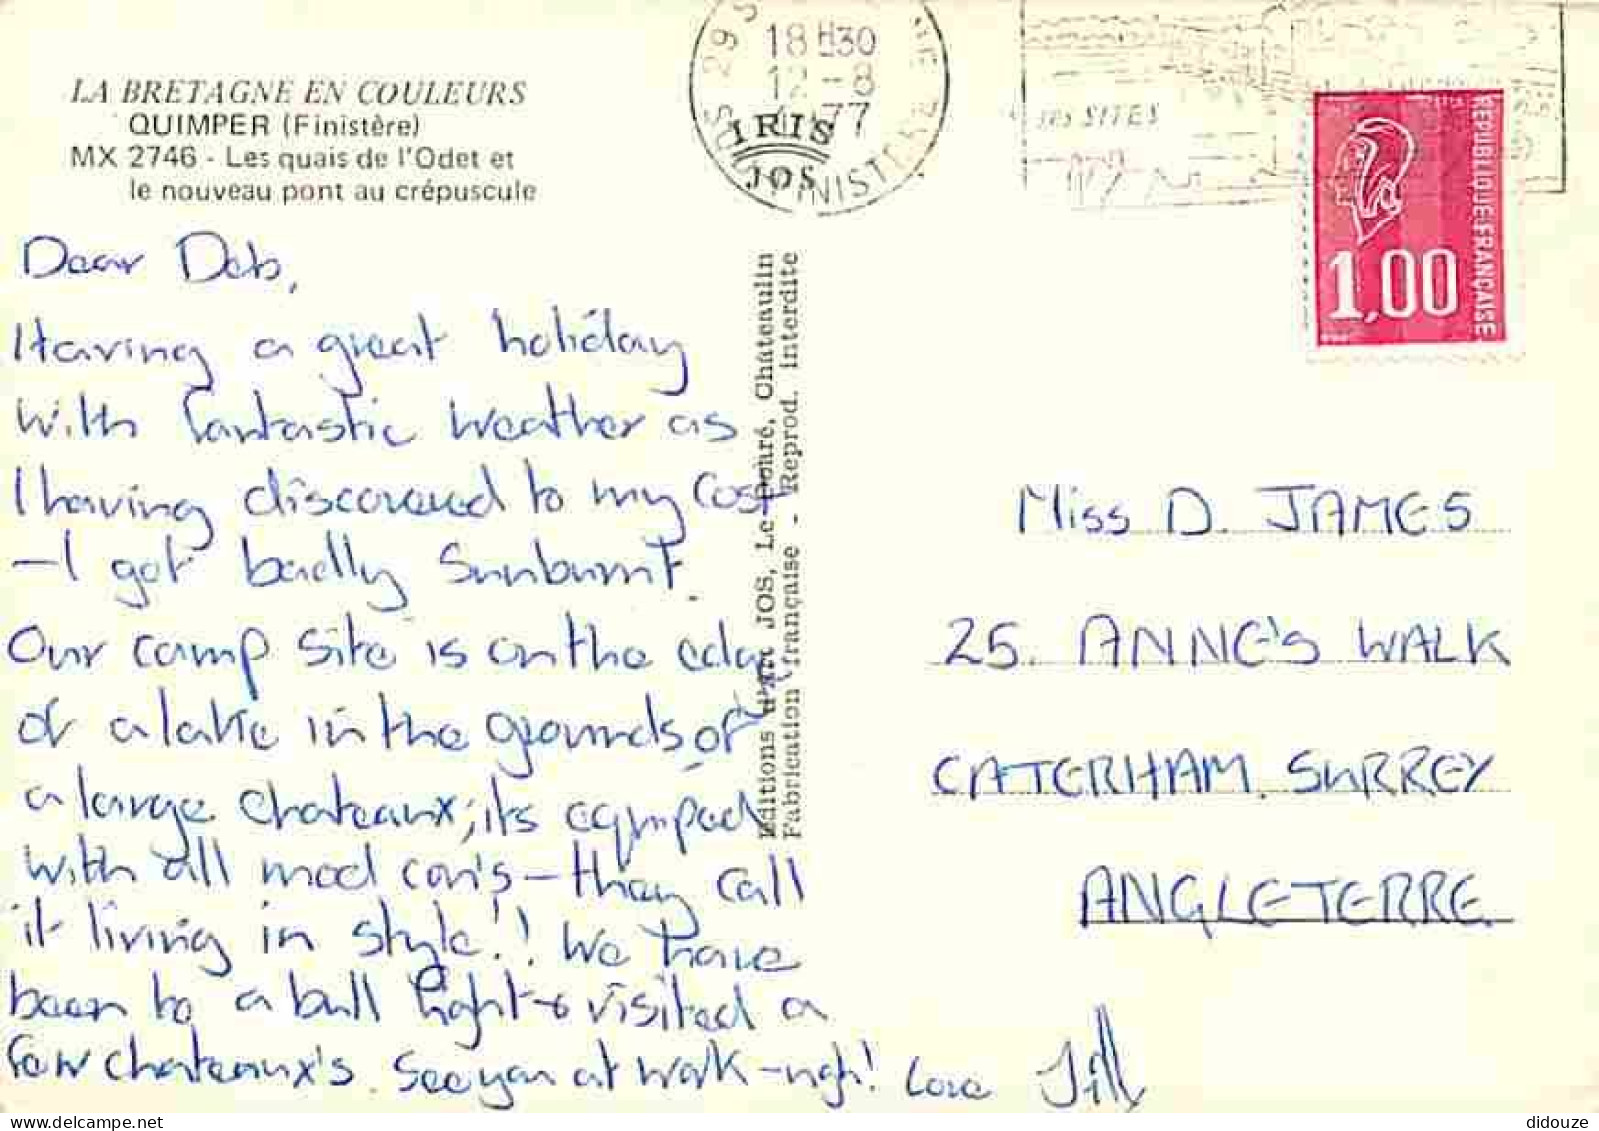 LA BRETAGNE EN COULEURS
QUIMPER (Finistère)
MX 2746 - Les quais de l'Odet et
le nouveau pont au crépuscule
18H30
12-8
77
29 S
FINISTERE
IRIS
JOS
SES SITES
REPUBLIQUE FRANÇAISE
1,00
Dear Deb,
Having a great holiday
with fantastic weather as
I having discovered to my cost
- I got badly sunburnt.
Our camp site is on the edge
of a lake in the grounds of
a large chateaux; its equiped
with all mod con's - they call
it living in style!! We have
been to a bull fight & visited a
few chateaux's. See you at work - ugh! Love Jill
Editions d'Art JOS, Le Doaré, Châteaulin
Fabrication française - Reprod. interdite
Miss D. JAMES
25. ANNE'S WALK
CATERHAM. SURREY
ANGLETERRE.
didouze